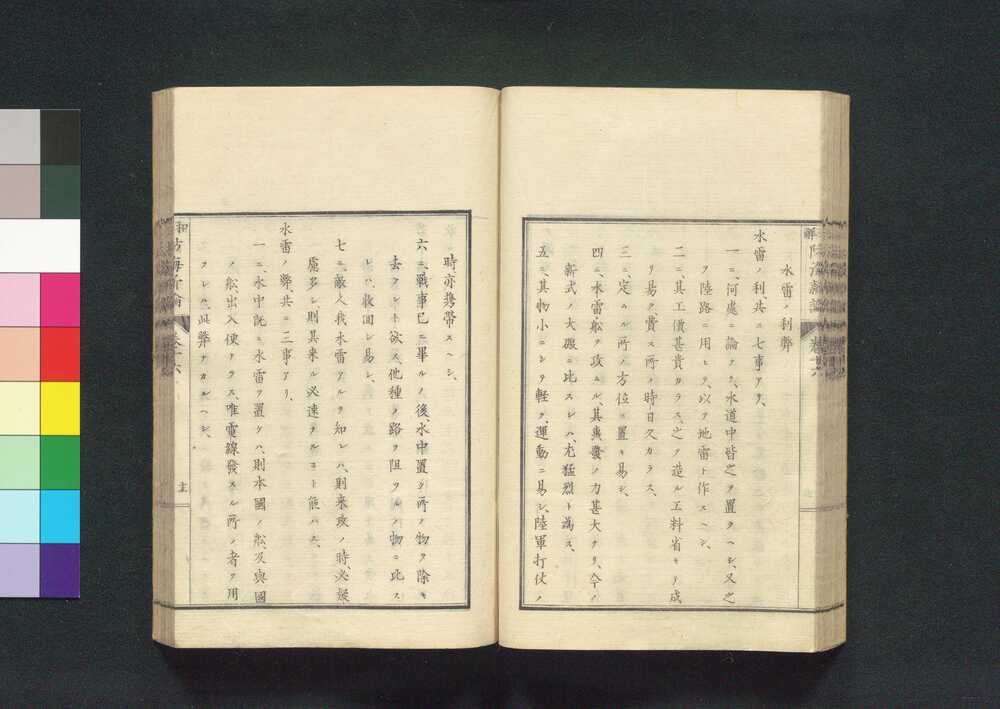 水雷ノ利弊
水雷ノ利、共ニ七事アリ、
一ニ、何處ニ論ナク、水道中皆之ヲ置クヘシ、又之
ヲ陸路ニ用ヒテ、以テ地雷ト作スヘシ、
二ニ、其工價甚貴カラス、之ヲ造ル工料省キテ成
リ易ク、費ス所ノ時日久カラス、
三ニ、定ムル所ノ方位ニ置キ易シ、
四ニ、水雷船ヲ攻ムル、其轟發ノ力甚大ナリ、今ノ
新式ノ大礟ニ比スレハ、尤猛烈ト為ス、
五ニ、其物小ニシテ軽ク、運動ニ易シ、陸軍打仗ノ
時亦携帶スヘシ、
六ニ、戰事已ニ畢ルノ後、水中置ク所ノ物ヲ除キ
去ラント欲ス、他種ノ路ヲ阻ツルノ物ニ比ス
レハ、收回シ易シ、
七ニ、敵人我水雷アルヲ知レハ、則来攻ノ時、必疑
慮多シ、則其来ル必速ナルコト能ハス、
水雷ノ弊、共ニ二事アリ、
一ニ、水中既ニ水雷ヲ置ケハ、則本國ノ船及與國
ノ船出入便ナラス、唯電線發スル所ノ者ヲ用
フレハ、此弊ナカルヘシ、
卷十六